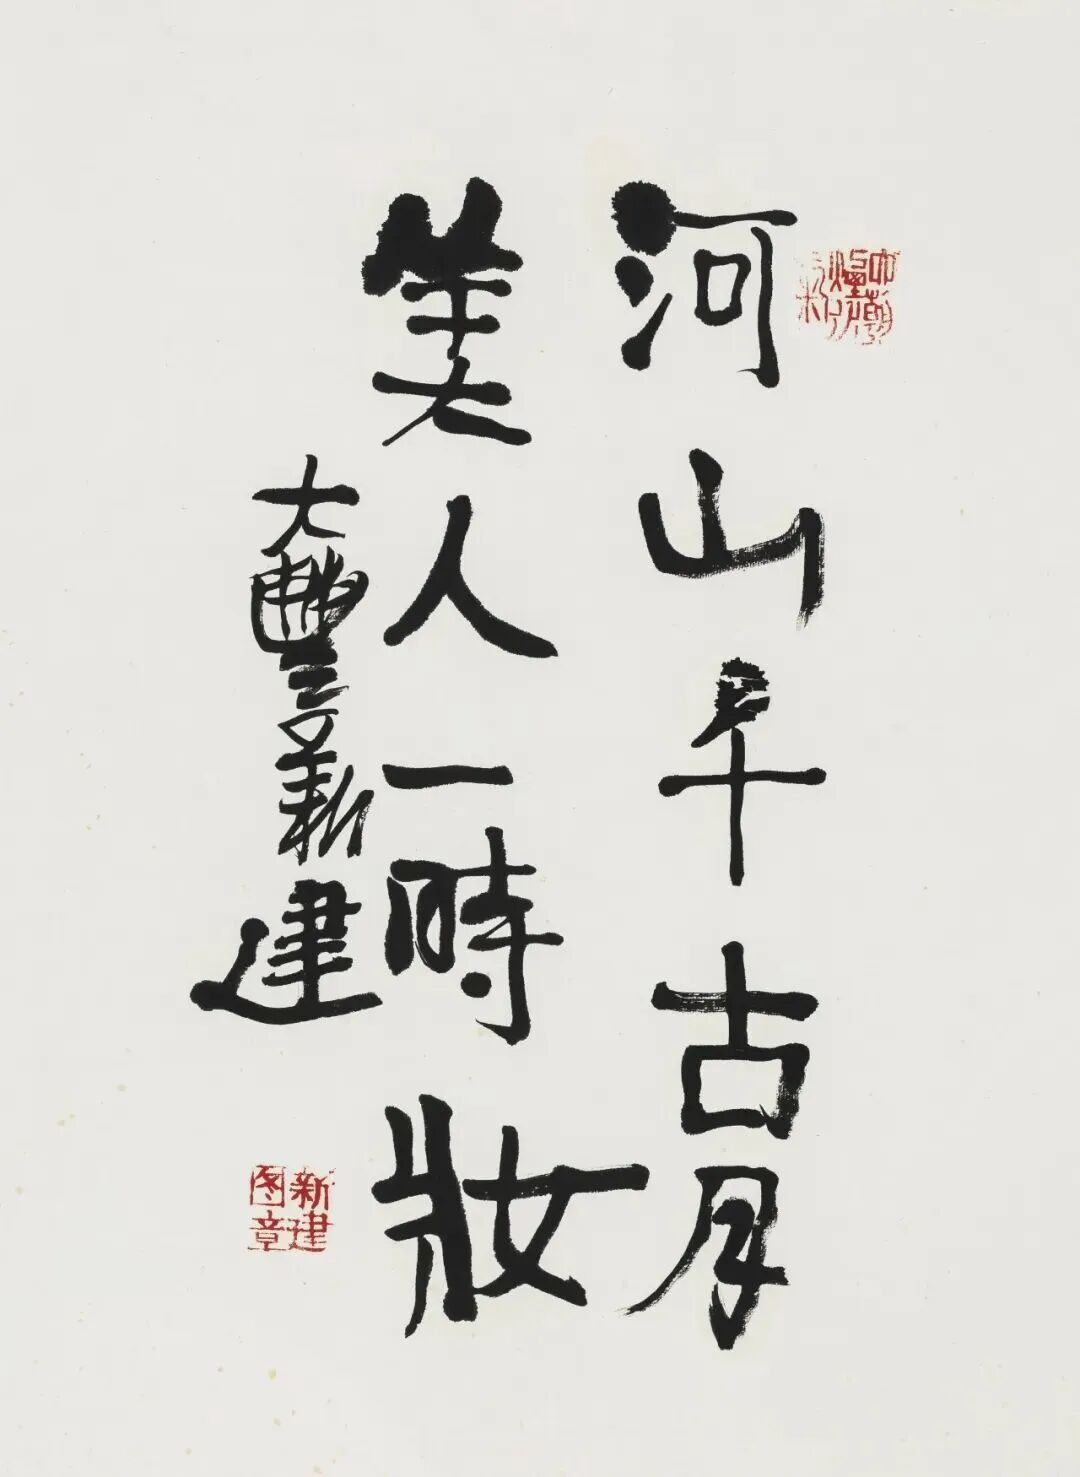 河山千古月
美人一時妝
大豐新建
新建
图章